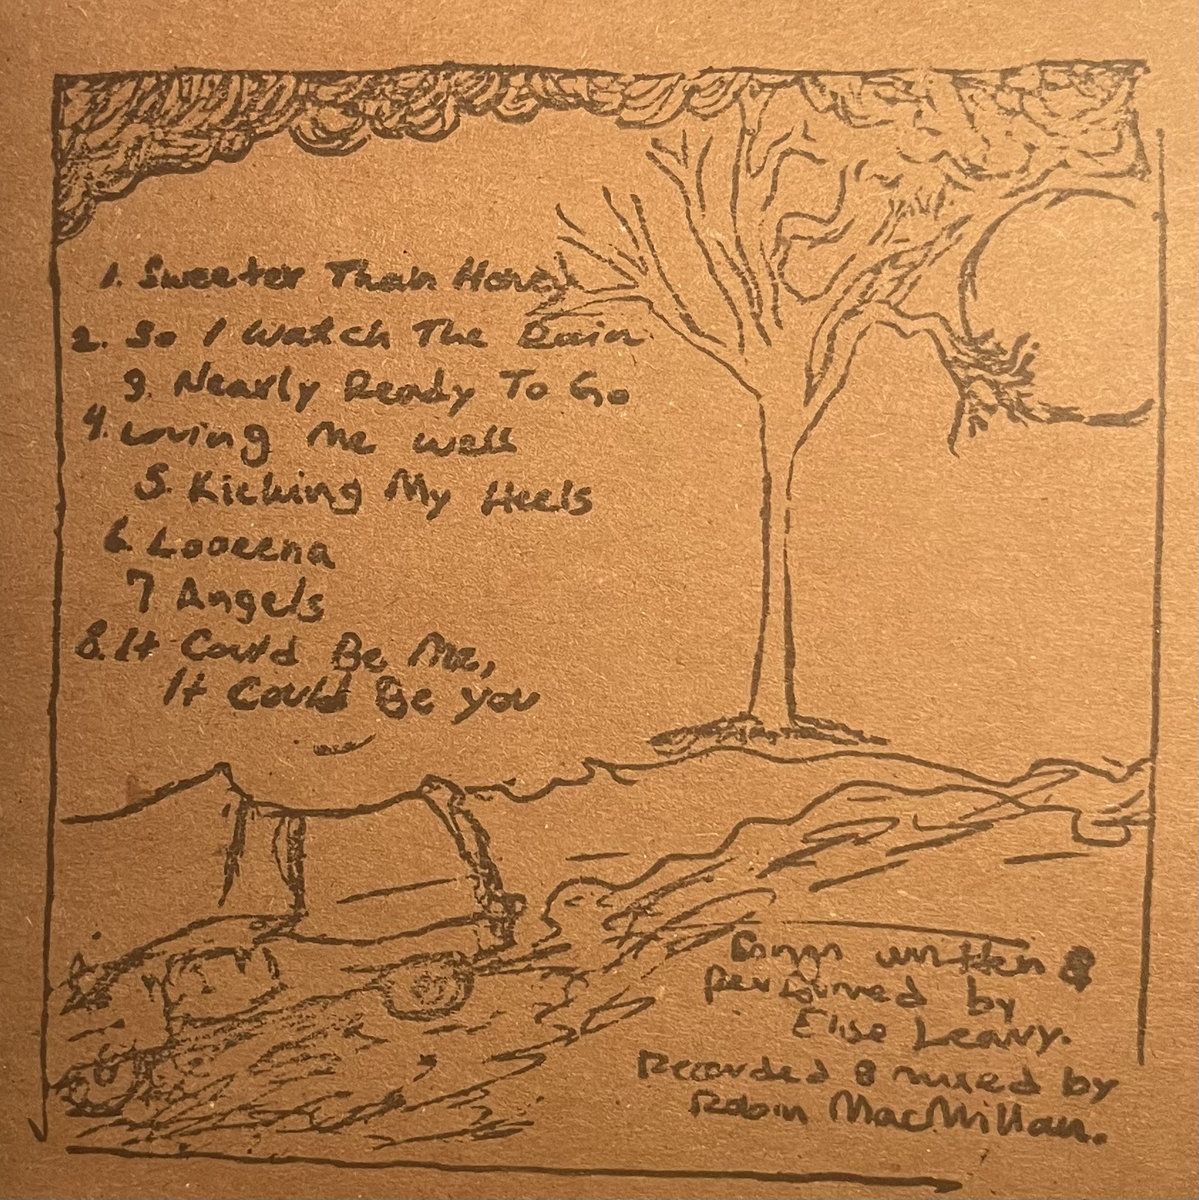 1. Sweeter Than Honey
2. So I Watch The Rain
3. Nearly Ready To Go
4. Loving Me Well
5. Kicking My Heels
6. Looreena
7 Angels
8. It Could Be Me,
It Could Be You
Songs written &
performed by
Elise Leavy.
Recorded & mixed by
Robin MacMillan.